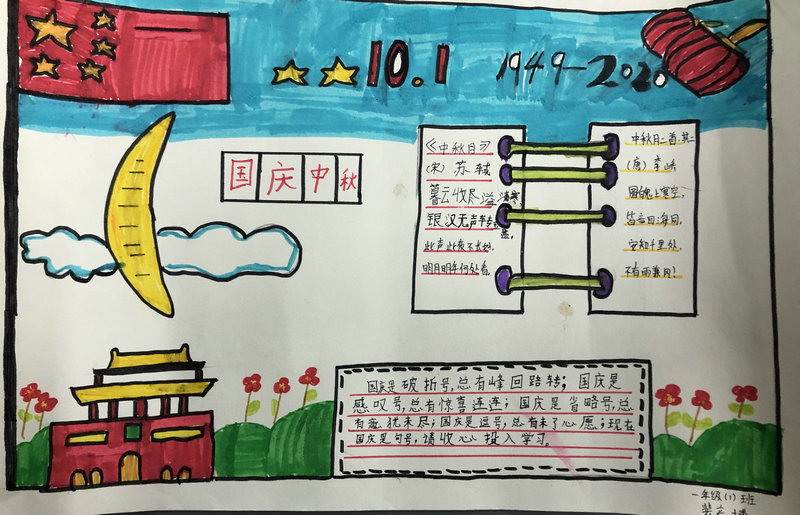 10.1
1949-2020
国庆中秋
《中秋月》
(宋) 苏轼
暮云收尽溢清寒,
银汉无声转玉盘,
此声此夜不长好,
明月明年何处看。
中秋月二首·其二
(唐) 李峤
圆魄上寒空,
皆言四海同,
安知千里外,
不有雨兼风?
国庆是破折号,总有峰回路转;国庆是
感叹号,总有惊喜连连;国庆是省略号,总
有意犹未尽;国庆是逗号,总有未了心愿;现在
国庆是句号,请收心投入学习。
一年级(1)班